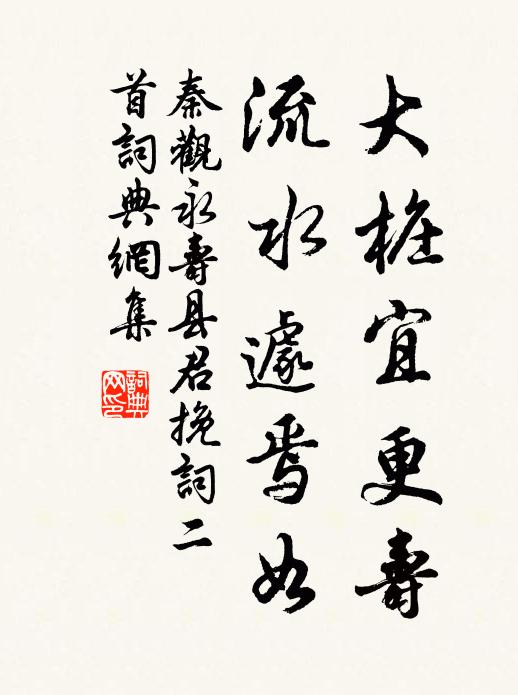 大椿宜更壽
流水遽焉如
秦觀永壽县君挽詞二
首詞典網集
詞典网印